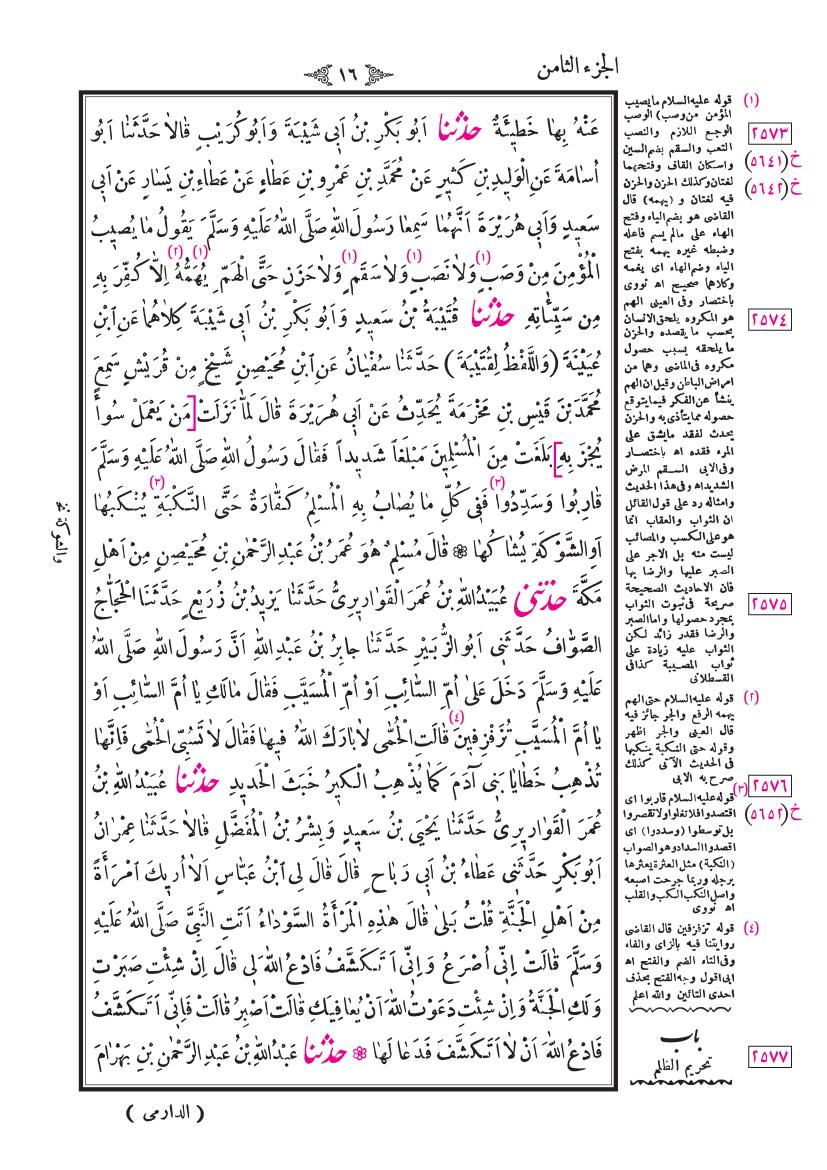 الجزء الثامن
١٦
عَنْهُ بِهَا خَطِيئَةٌ حَدَّثَنَا اَبُو بَكْرِ بْنُ اَبِى شَيْبَةَ وَاَبُوكُرَيْبٍ قَالاَ حَدَّثَنَا اَبُو
اُسَامَةَ عَنِ الْوَلِيدِ بْنِ كَثِيرٍ عَنْ مُحَمَّدِ بْنِ عَمْرِو بْنِ عَطَاءٍ عَنْ عَطَاءِ بْنِ يَسَارٍ عَنْ اَبِى
سَعِيدٍ وَاَبِى هُرَيْرَةَ اَنَّهُمَا سَمِعَا رَسُولَ اللهِ صَلَّى اللهُ عَلَيْهِ وَسَلَّمَ يَقُولُ مَا يُصِيبُ
الْمُؤْمِنَ مِنْ وَصَبٍ (١) وَلاَ نَصَبٍ (١) وَلاَ سَقَمٍ (١) وَلاَ حَزَنٍ حَتَّى الْهَمِّ (١) يُهَمُّهُ (٢) اِلاَّ كُفِّرَ بِهِ
مِنْ سَيِّئَاتِهِ حَدَّثَنَا قُتَيْبَةُ بْنُ سَعِيدٍ وَاَبُو بَكْرِ بْنُ اَبِى شَيْبَةَ كِلاَهُمَا عَنِ ابْنِ
عُيَيْنَةَ (وَاللَّفْظُ لِقُتَيْبَةَ) حَدَّثَنَا سُفْيَانُ عَنِ ابْنِ مُحَيْصِنٍ شَيْخٍ مِنْ قُرَيْشٍ سَمِعَ
مُحَمَّدَ بْنَ قَيْسِ بْنِ مَخْرَمَةَ يُحَدِّثُ عَنْ اَبِى هُرَيْرَةَ قَالَ لَمَّا نَزَلَتْ [مَنْ يَعْمَلْ سُوأً
يُجْزَ بِهِ] بَلَغَتْ مِنَ الْمُسْلِمِينَ مَبْلَغاً شَدِيداً فَقَالَ رَسُولُ اللهِ صَلَّى اللهُ عَلَيْهِ وَسَلَّمَ
قَارِبُوا وَسَدِّدُوا (٣) فَفِى كُلِّ مَا يُصَابُ بِهِ الْمُسْلِمُ كَفَّارَةٌ حَتَّى النَّكْبَةِ (٣) يُنْكَبُهَا
اَوِ الشَّوْكَةِ يُشَاكُهَا ❁ قَالَ مُسْلِمٌ هُوَ عُمَرُ بْنُ عَبْدِ الرَّحْمٰنِ بْنِ مُحَيْصِنٍ مِنْ اَهْلِ
مَكَّةَ حَدَّثَنِى عُبَيْدُ اللهِ بْنُ عُمَرَ الْقَوَارِيرِىُّ حَدَّثَنَا يَزِيدُ بْنُ زُرَيْعٍ حَدَّثَنَا الْحَجَّاجُ
الصَّوَّافُ حَدَّثَنِى اَبُو الزُّبَيْرِ حَدَّثَنَا جَابِرُ بْنُ عَبْدِ اللهِ اَنَّ رَسُولَ اللهِ صَلَّى اللهُ
عَلَيْهِ وَسَلَّمَ دَخَلَ عَلٰى اُمِّ السَّائِبِ اَوْ اُمِّ الْمُسَيَّبِ فَقَالَ مَالَكِ يَا اُمَّ السَّائِبِ اَوْ
يَا اُمَّ الْمُسَيَّبِ تُزَفْزِفِينَ (٤) قَالَتِ الْحُمَّى لاَ بَارَكَ اللهُ فِيهَا فَقَالَ لاَ تَسُبِّى الْحُمَّى فَاِنَّهَا
تُذْهِبُ خَطَايَا بَنِى آدَمَ كَمَا يُذْهِبُ الْكِيرُ خَبَثَ الْحَدِيدِ حَدَّثَنَا عُبَيْدُ اللهِ بْنُ
عُمَرَ الْقَوَارِيرِىُّ حَدَّثَنَا يَحْيَى بْنُ سَعِيدٍ وَبِشْرُ بْنُ الْمُفَضَّلِ قَالاَ حَدَّثَنَا عِمْرَانُ
اَبُو بَكْرٍ حَدَّثَنِى عَطَاءُ بْنُ اَبِى رَبَاحٍ قَالَ قَالَ لِى ابْنُ عَبَّاسٍ اَلاَ اُرِيكَ امْرَأَةً
مِنْ اَهْلِ الْجَنَّةِ قُلْتُ بَلٰى قَالَ هٰذِهِ الْمَرْأَةُ السَّوْدَاءُ اَتَتِ النَّبِىَّ صَلَّى اللهُ عَلَيْهِ
وَسَلَّمَ قَالَتْ اِنِّى اُصْرَعُ وَاِنِّى اَتَكَشَّفُ فَادْعُ اللهَ لِى قَالَ اِنْ شِئْتِ صَبَرْتِ
وَلَكِ الْجَنَّةُ وَاِنْ شِئْتِ دَعَوْتُ اللهَ اَنْ يُعَافِيَكِ قَالَتْ اَصْبِرُ قَالَتْ فَاِنِّى اَتَكَشَّفُ
فَادْعُ اللهَ اَنْ لاَ اَتَكَشَّفَ فَدَعَا لَهَا ❁ حَدَّثَنَا عَبْدُ اللهِ بْنُ عَبْدِ الرَّحْمٰنِ بْنِ بَهْرَامَ
( الدارمى )
(١) قوله عليه السلام ما يصيب
المؤمن من وصب) الوصب
الوجع اللازم والنصب
التعب والسقم بضم السين
واسكان القاف وفتحهما
لغتان وكذلك الحزن والحزن
فيه لغتان و (يهمه) قال
القاضى هو بضم الياء وفتح
الهاء على مالم يسم فاعله
وضبطه غيره يهمه بفتح
الياء وضم الهاء اى يغمه
وكلاهما صحيح اه نووى
باختصار وفى العينى الهم
هو المكروه يلحق الانسان
بحسب ما يقصده والحزن
ما يلحقه بسبب حصول
مكروه فى الماضى وهما من
امراض الباطن وقيل ان الهم
ينشأ عن الفكر فيما يتوقع
حصوله مما يتأذى به والحزن
يحدث لفقد ما يشق على
المرء فقده اه باختصار
وفى الابى السقم المرض
الشديد اه وفى هذا الحديث
وامثاله رد على قول القائل
ان الثواب والعقاب انما
هو على الكسب والمصائب
ليست منه بل الاجر على
الصبر عليها والرضا بها
فان الاحاديث الصحيحة
صريحة فى ثبوت الثواب
بمجرد حصولها واما الصبر
والرضا فقدر زائد لكن
الثواب عليه زيادة على
ثواب المصيبة كذا فى
القسطلانى
(٢) قوله عليه السلام حتى الهم
يهمه الرفع والجر جائز فيه
قال العينى والجر اظهر
وقوله حتى النكبة ينكبها
فى الحديث الآتى كذلك
صرح به الابى
(٣) قوله عليه السلام قاربوا اى
اقتصدوا فلا تغلوا ولا تقصروا
بل توسطوا (وسددوا) اى
اقصدوا السداد وهو الصواب
(النكبة) مثل العثرة يعثرها
برجله وربما جرحت اصبعه
واصل النكب الكب والقلب
اه نووى
(٤) قوله تزفزفين قال القاضى
روايتنا فيه بالزاى والفاء
وفى التاء الضم والفتح اه
ابى اقول وجه الفتح بحذف
احدى التائين والله اعلم
باب
تحريم الظلم
٢٥٧٣
خ (٥٦٤١)
خ (٥٦٤٢)
٢٥٧٤
٢٥٧٥
٢٥٧٦
خ (٥٦٥٢)
٢٥٧٧